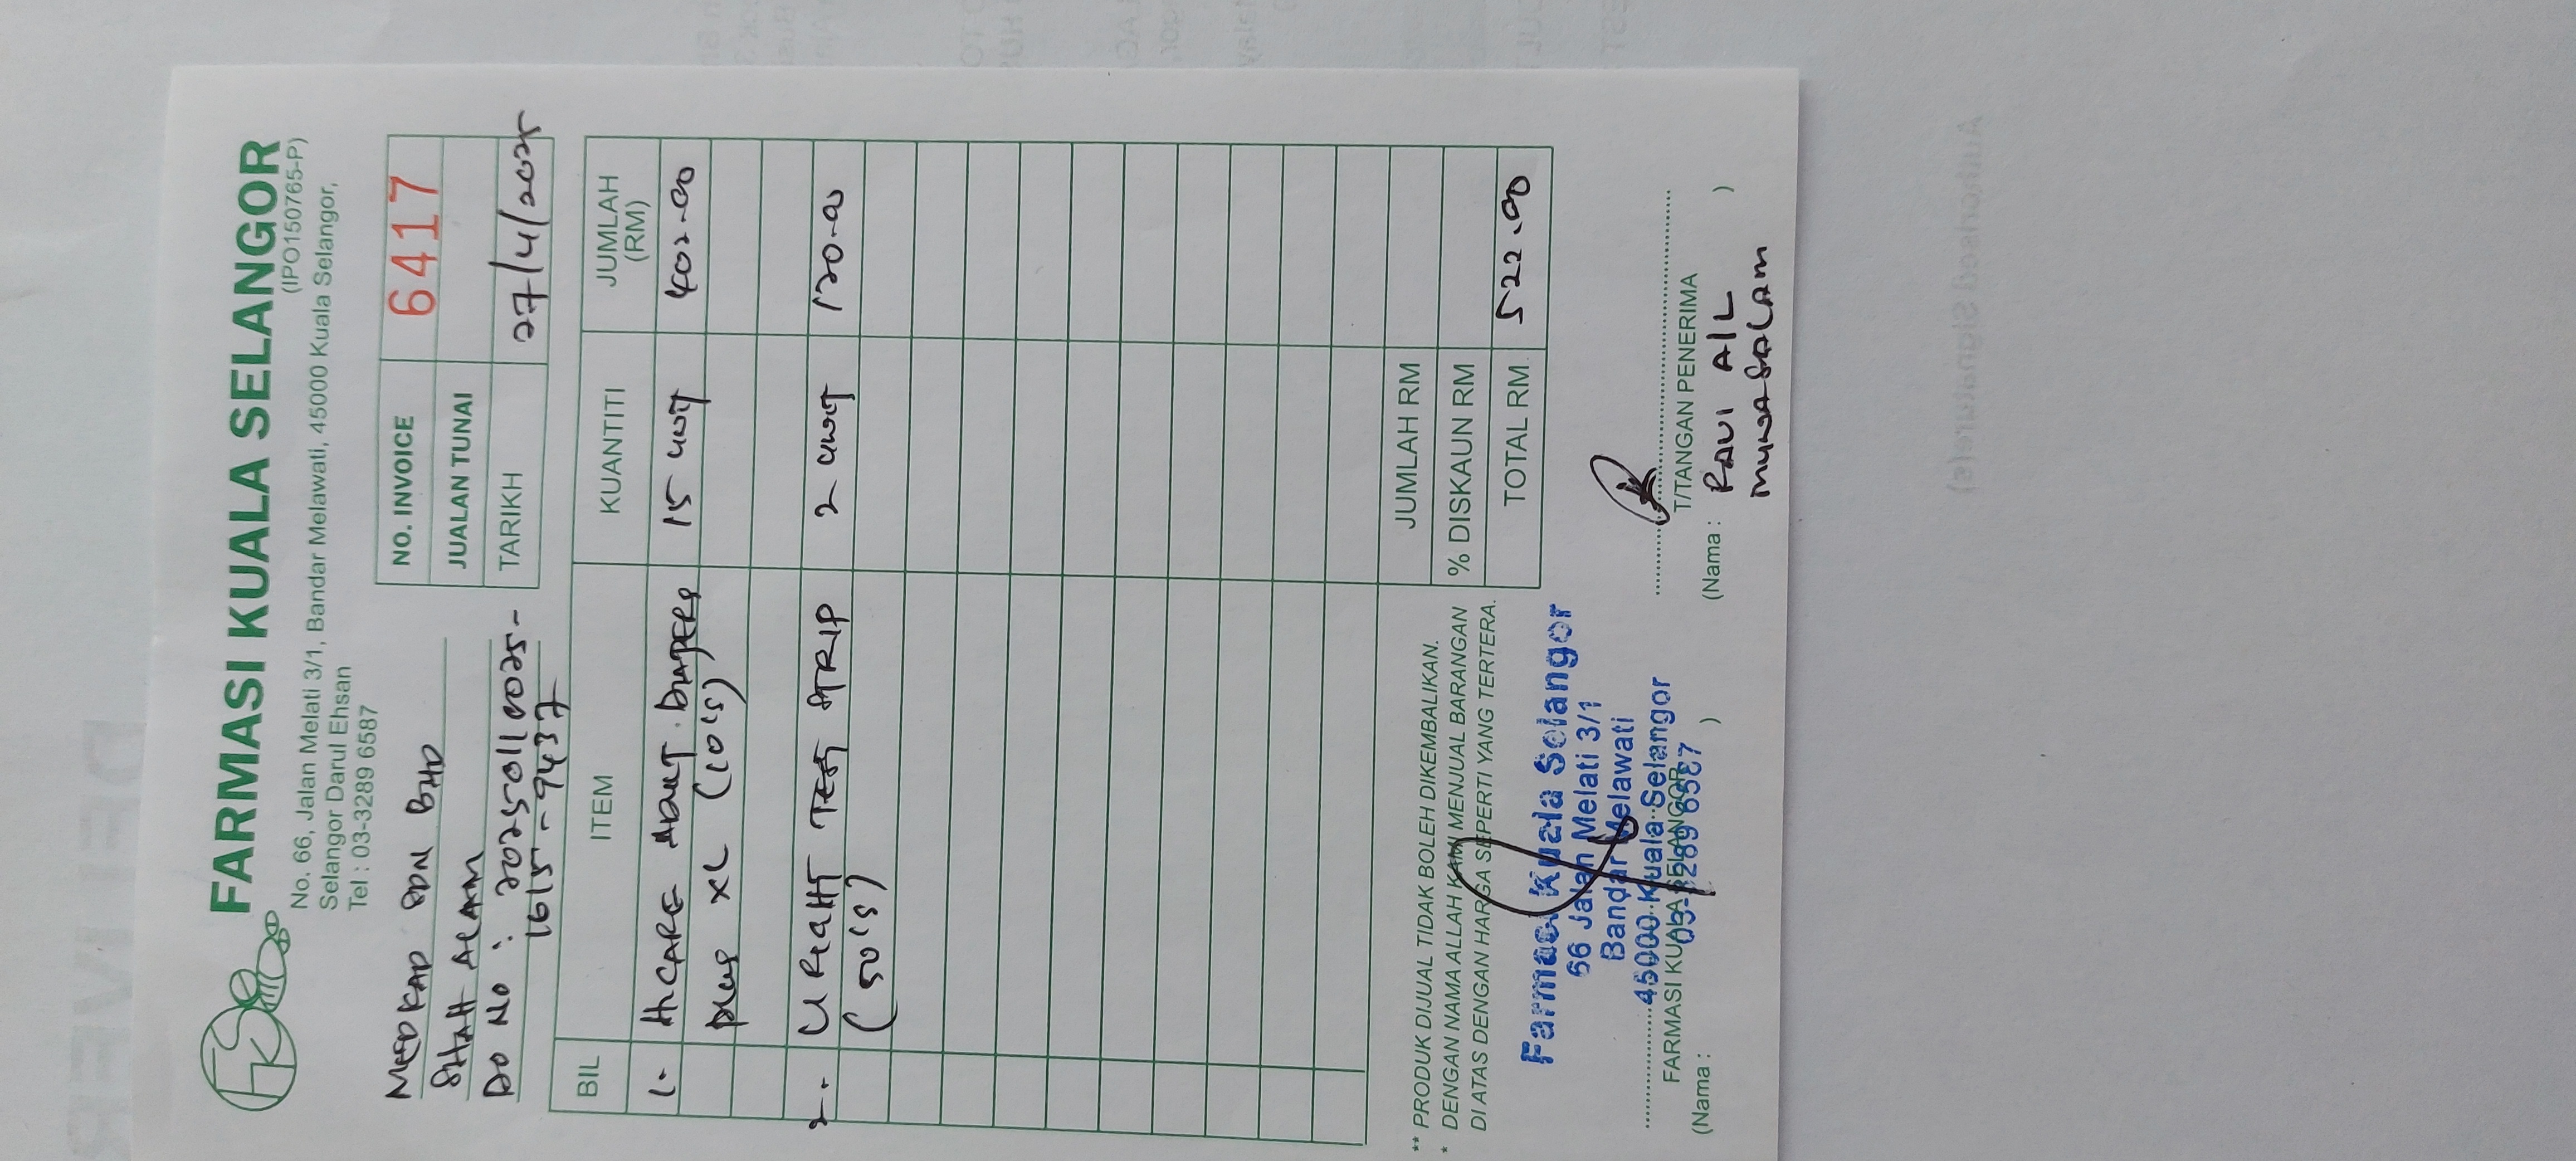 FARMASI KUALA SELANGOR
(IPO150765-P)
No. 66, Jalan Melati 3/1, Bandar Melawati, 45000 Kuala Selangor,
Selangor Darul Ehsan
Tel : 03-3289 6587
MEDKAD SDN BHD
SHAH ALAM
DO NO : 20250110025-
1615-9437
NO. INVOICE 6417
JUALAN TUNAI
TARIKH 27/4/2025
BIL ITEM KUANTITI JUMLAH (RM)
1. H.CARE ADULT DIAPERS 15 unit 402.00
plus XL (10's)
2. U RIGHT TEST STRIP 2 unit 120.00
(50's)
JUMLAH RM
% DISKAUN RM
TOTAL RM 522.00
** PRODUK DIJUAL TIDAK BOLEH DIKEMBALIKAN.
* DENGAN NAMA ALLAH KAMI MENJUAL BARANGAN
DI ATAS DENGAN HARGA SEPERTI YANG TERTERA.
Farmasi Kuala Selangor
66 Jalan Melati 3/1
Bandar Melawati
45000 Kuala Selangor
03-3289 6587
FARMASI KUALA SELANGOR
(Nama : )
T/TANGAN PENERIMA
(Nama : RAVI A/L )
MUNASALAM
Authorised Signature(s)